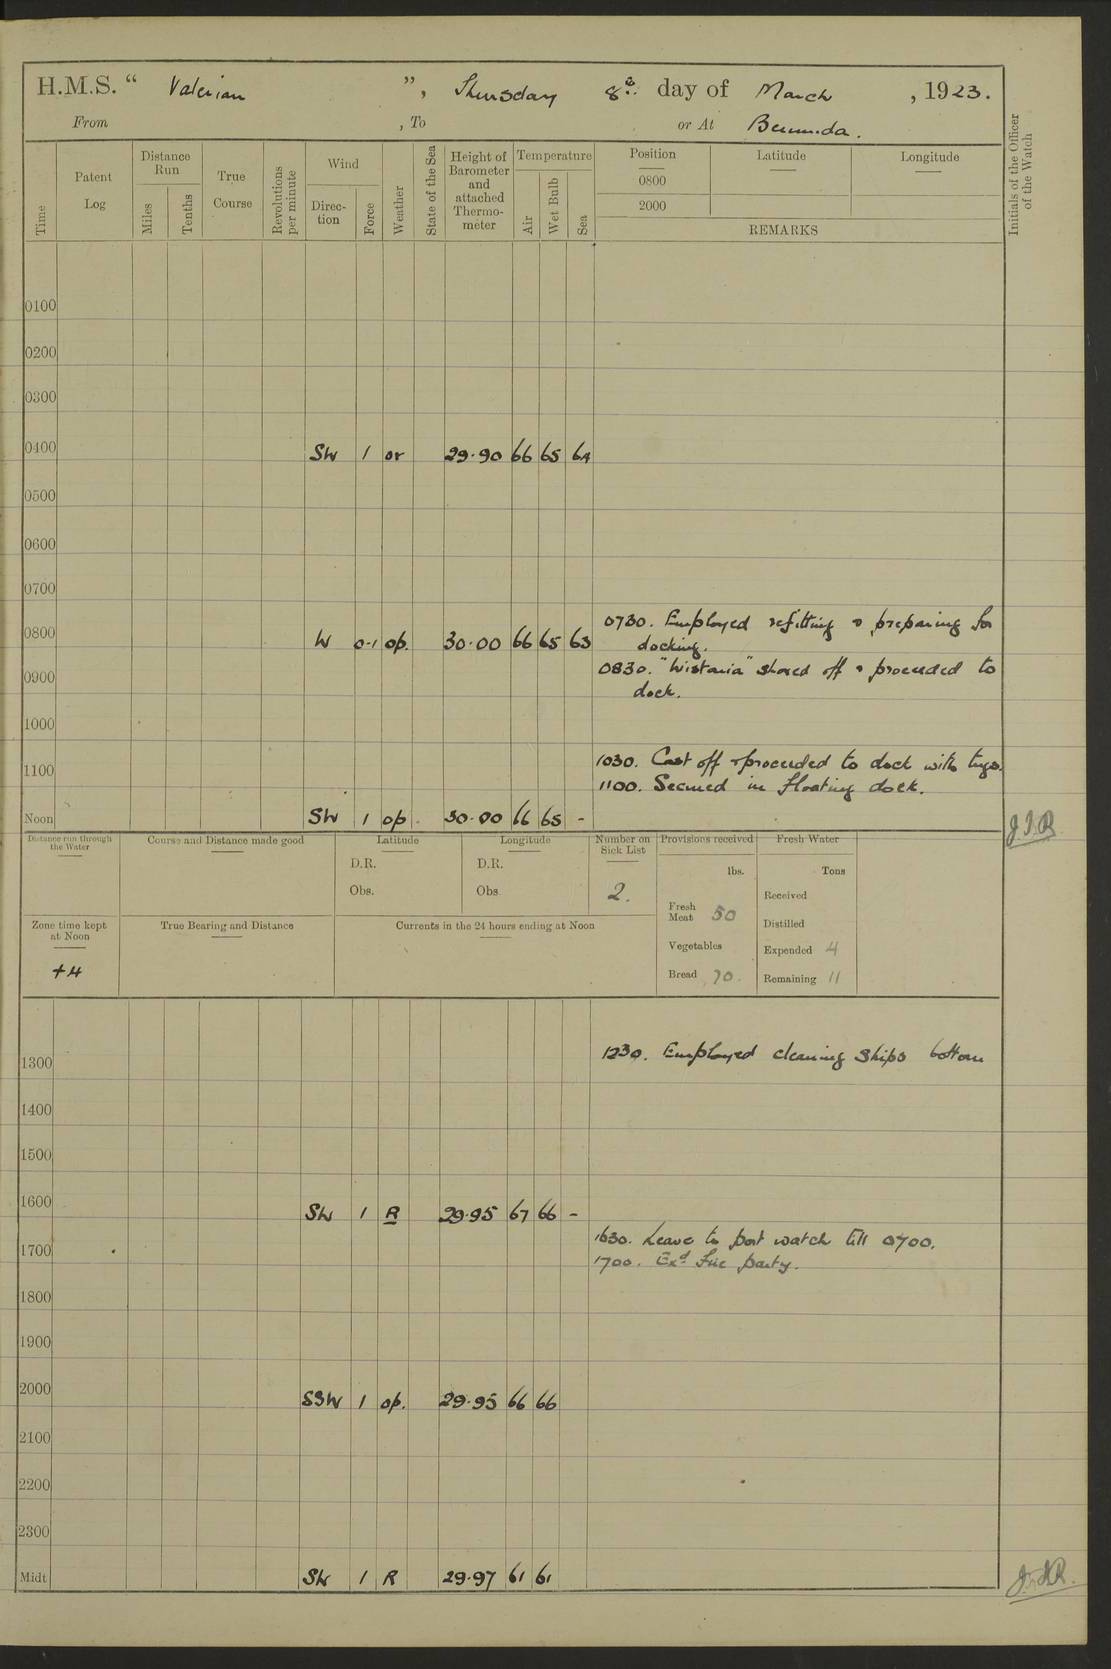 H.M.S. “ Valerian ”, Thursday 8th day of March, 1923.
From , To or At Bermuda.
Time
Patent Log
Distance Run
Miles
Tenths
True Course
Revolutions per minute
Wind
Direction
Force
Weather
State of the Sea
Height of Barometer and attached Thermometer
Temperature
Air
Wet Bulb
Sea
Position
Latitude
Longitude
0800
2000
REMARKS
Initials of the Officer of the Watch
0100
0200
0300
0400 SW 1 or 29.90 66 65 64
0500
0600
0700
0730. Employed refitting & preparing for
docking.
0800 W 0-1 op. 30.00 66 65 63
0830. "Wistaria" shoved off & proceeded to
dock.
0900
1000
1030. Cast off & proceeded to dock with tugs.
1100
1100. Secured in floating dock.
Noon SW 1 op. 30.00 66 65 -
Distance run through the Water
Course and Distance made good
Latitude
D.R.
Obs.
Longitude
D.R.
Obs
Number on Sick List
2.
Provisions received
lbs.
Fresh Meat 50
Vegetables
Bread 70.
Fresh Water
Tons
Received
Distilled
Expended 4
Remaining 11
Zone time kept at Noon
+4
True Bearing and Distance
Currents in the 24 hours ending at Noon
1230. Employed cleaning ships bottom
1300
1400
1500
1600 SW 1 R 29.95 67 66 -
1630. Leave to port watch till 0700.
1700
1700. Exd fire party.
1800
1900
2000 SSW 1 op. 29.95 66 66
2100
2200
2300
Midt SW 1 R 29.97 61 61